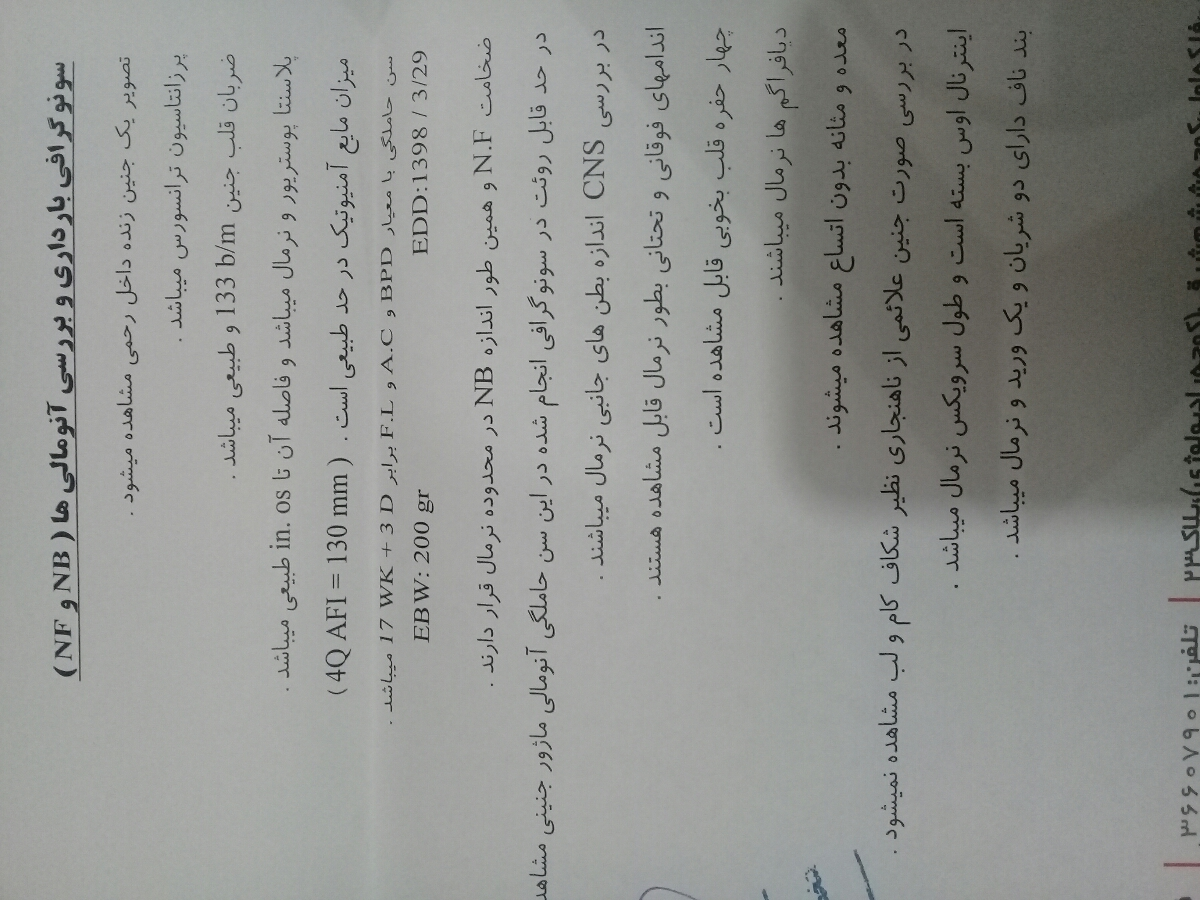 سونوگرافی بارداری و بررسی آنومالی ها ( NB و NF )
تصویر یک جنین زنده داخل رحمی مشاهده میشود .
پرزانتاسیون ترانسورس میباشد .
ضربان قلب جنین 133 b/m و طبیعی میباشد .
پلاسنتا پوستریور و نرمال میباشد و فاصله آن تا in. os طبیعی میباشد .
میزان مایع آمنیوتیک در حد طبیعی است . ( 4Q AFI = 130 mm )
سن حاملگی با معیار BPD و A.C و F.L برابر 17 WK + 3 D میباشد .
EDD:1398 / 3/29 EBW: 200 gr
ضخامت N.F و همین طور اندازه NB در محدوده نرمال قرار دارند .
در حد قابل روئت در سونوگرافی انجام شده در این سن حاملگی آنومالی ماژور جنینی مشاهد
در بررسی CNS اندازه بطن های جانبی نرمال میباشند .
اندامهای فوقانی و تحتانی بطور نرمال قابل مشاهده هستند .
چهار حفره قلب بخوبی قابل مشاهده است .
دیافراگم ها نرمال میباشند .
معده و مثانه بدون اتساع مشاهده میشوند .
در بررسی صورت جنین علائمی از ناهنجاری نظیر شکاف کام و لب مشاهده نمیشود .
اینترنال اوس بسته است و طول سرویکس نرمال میباشد .
بند ناف دارای دو شریان و یک ورید و نرمال میباشد .
(کوچه رادیولوژی)، پلاک ۲۳ | تلفن: ۳۶۶۰۷۹۰۱